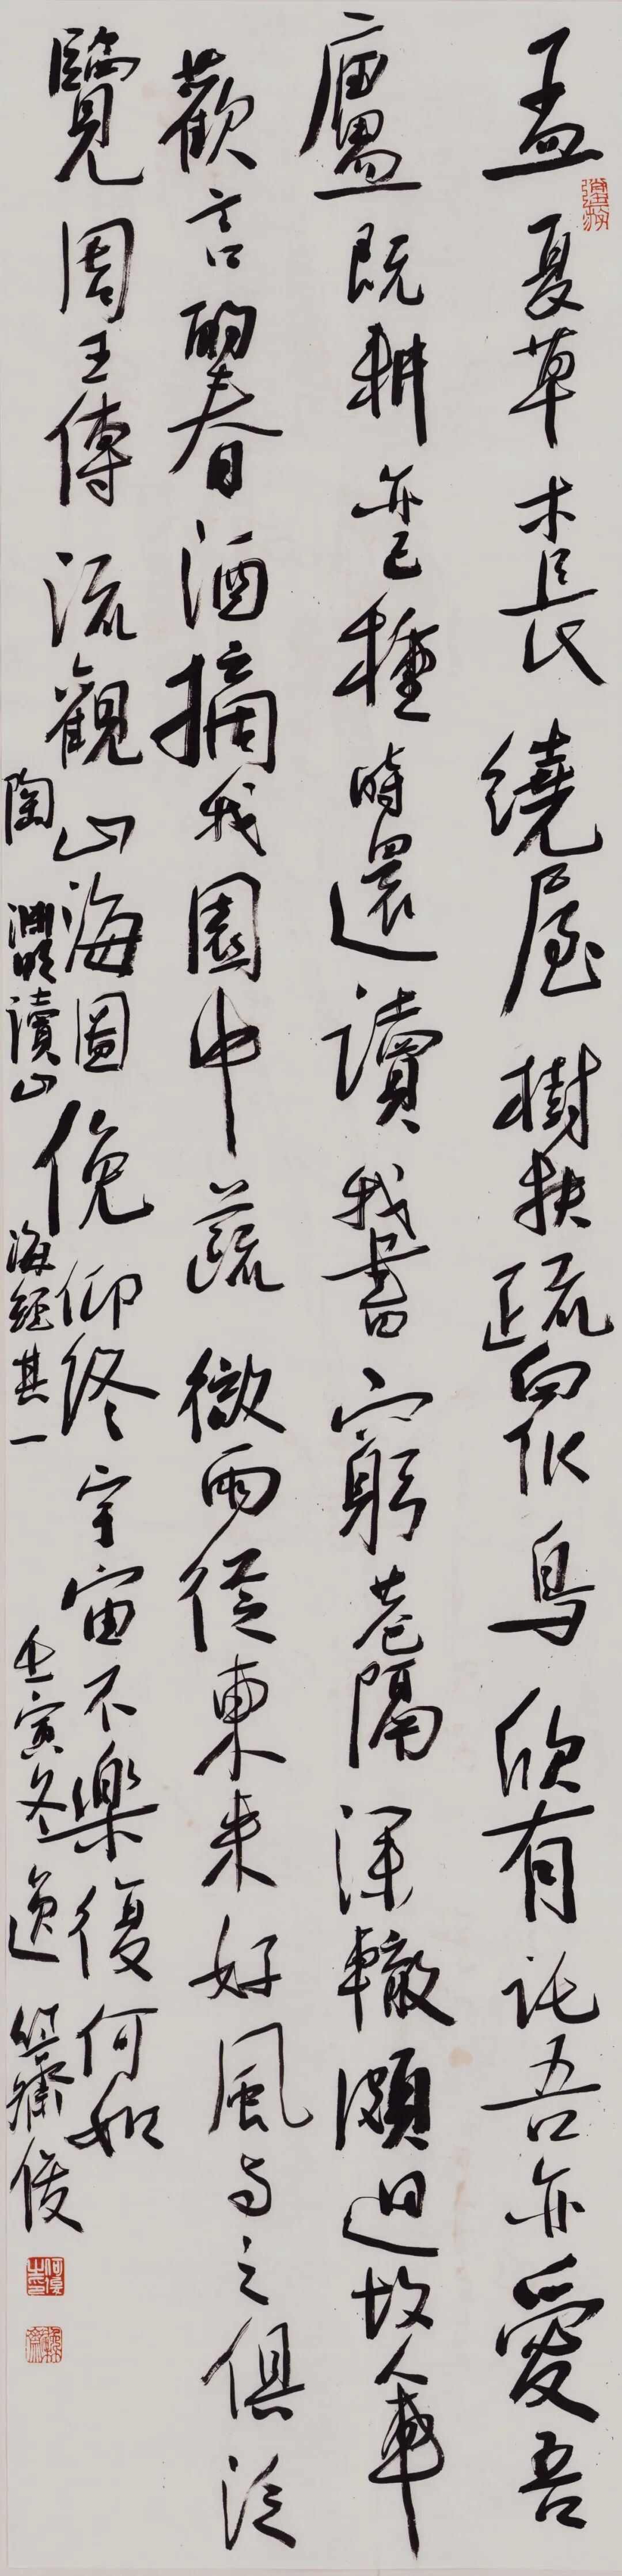 孟夏草木長繞屋樹扶疏眾鳥欣有託吾亦愛吾
廬既耕亦已種時還讀我書窮巷隔深轍頗迴故人車
歡言酌春酒摘我園中蔬微雨從東來好風與之俱泛
覽周王傳流觀山海圖俛仰終宇宙不樂復何如
陶淵明讀山海經其一 壬寅冬逸